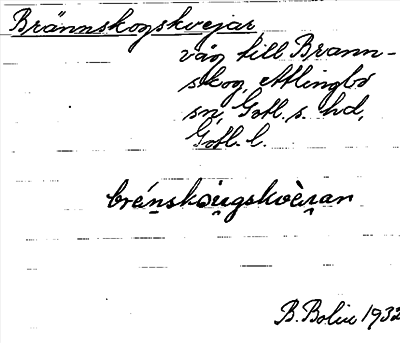 Brännskogskvejar,
väg till Bränn-
skog, Atlingbo
sn, Gotl. s. hd,
Gotl. l.
brén̠skòu̠gskvèɹ̠an
B. Bolin 1932